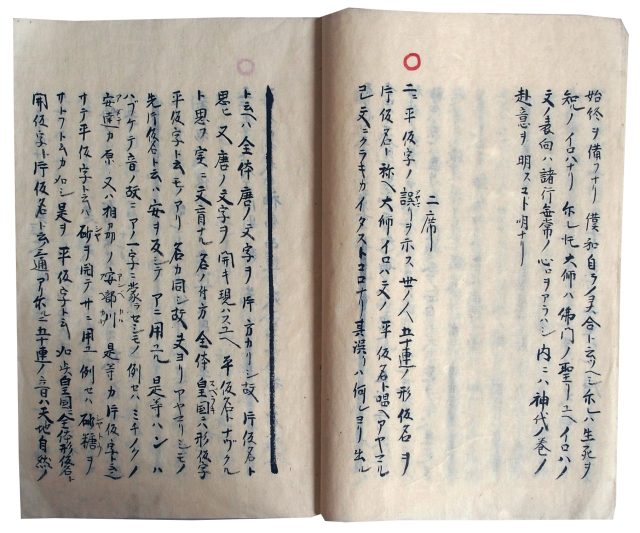 始終ヲ備フナリ 僕和自ラノ合ト云ツヘシ尓レハ生死ヲ
ノイロハナリ 尓レ𪜈大師ハ佛門ノ聖リユヘイロハノ
文ノ表向ハ諸行毎常ノ心ロヲアラハシ 内ニハ神代ノ巻ノ
赴意ヲ明スコト明ナリ
二席
二ニ平仮字ノ誤リヲホス世ノ人五十連ノ形仮名ヲ
片仮名ト称ヘ大師イロハ文ノ平仮名ト唱ヘアヤマル
文ニクラキカイタストコロナリ其誤リハ何レヨリ出ル
ト云ヘハ全体唐ノ文字ヲ片方カリシ故片仮名ト
思ヒ又唐ノ文字ヲ開キ現ハスユヘ平仮名トナツクル
ト思フ実ニ文盲ナル名ノ付方全体皇国ハ形仮字
平仮字ト云モノアリ名カ同シ故夫ヨリアヤマリシモノ
先片仮名ト云ハ安ヲ反シテアニ用ユル是等ハンハ
ハブケテ音ノ故ニアノ一字ニ蒙ラセシモノ例セハミチノクノ
安達カ原又ハ相刕ノ安部川是等カ片仮字ト云
サテ平仮字ト云ハ砂ヲ開テサニ用ユ例セハ砂糖ヲ
サトウト云カ如シ是ヲ平仮字ト云如此皇国ニ全体形仮名ト
開仮字ト片仮名ト云三通リアル尓ルニ五十連ノ音ハ天地自然ノ